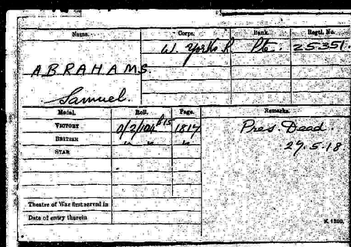 Name. Corps. Rank. Regtl. No.
W. Yorks R Pte. 25351.
ABRAHAMS.
Samuel.
Medal. Roll. Page. Remarks.
VICTORY O/2/104B15 1817 Pres. Dead.
BRITISH " " " 29.5.18
STAR
Theatre of War first served in
Date of entry therein
K. 1380.